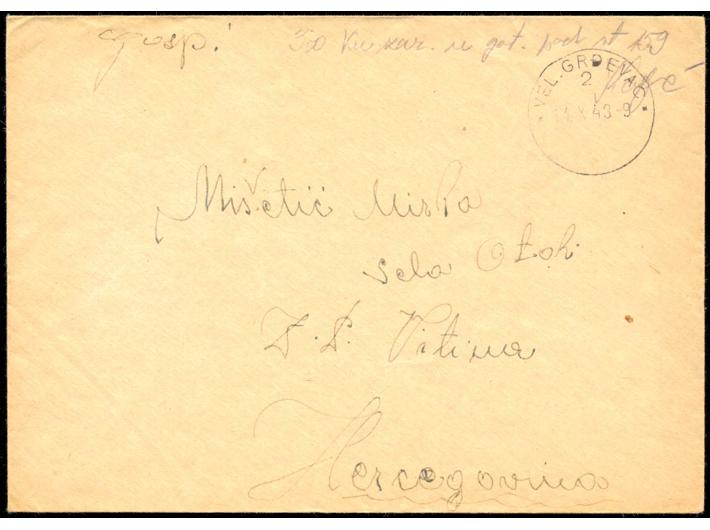 Gosp.
350 Kn kar. u got. pod st 159
VEL. GRĐEVAC
2
X 43-9
Mišetić Mirka
sela Otok
Z. P. Vitina
Hercegovina